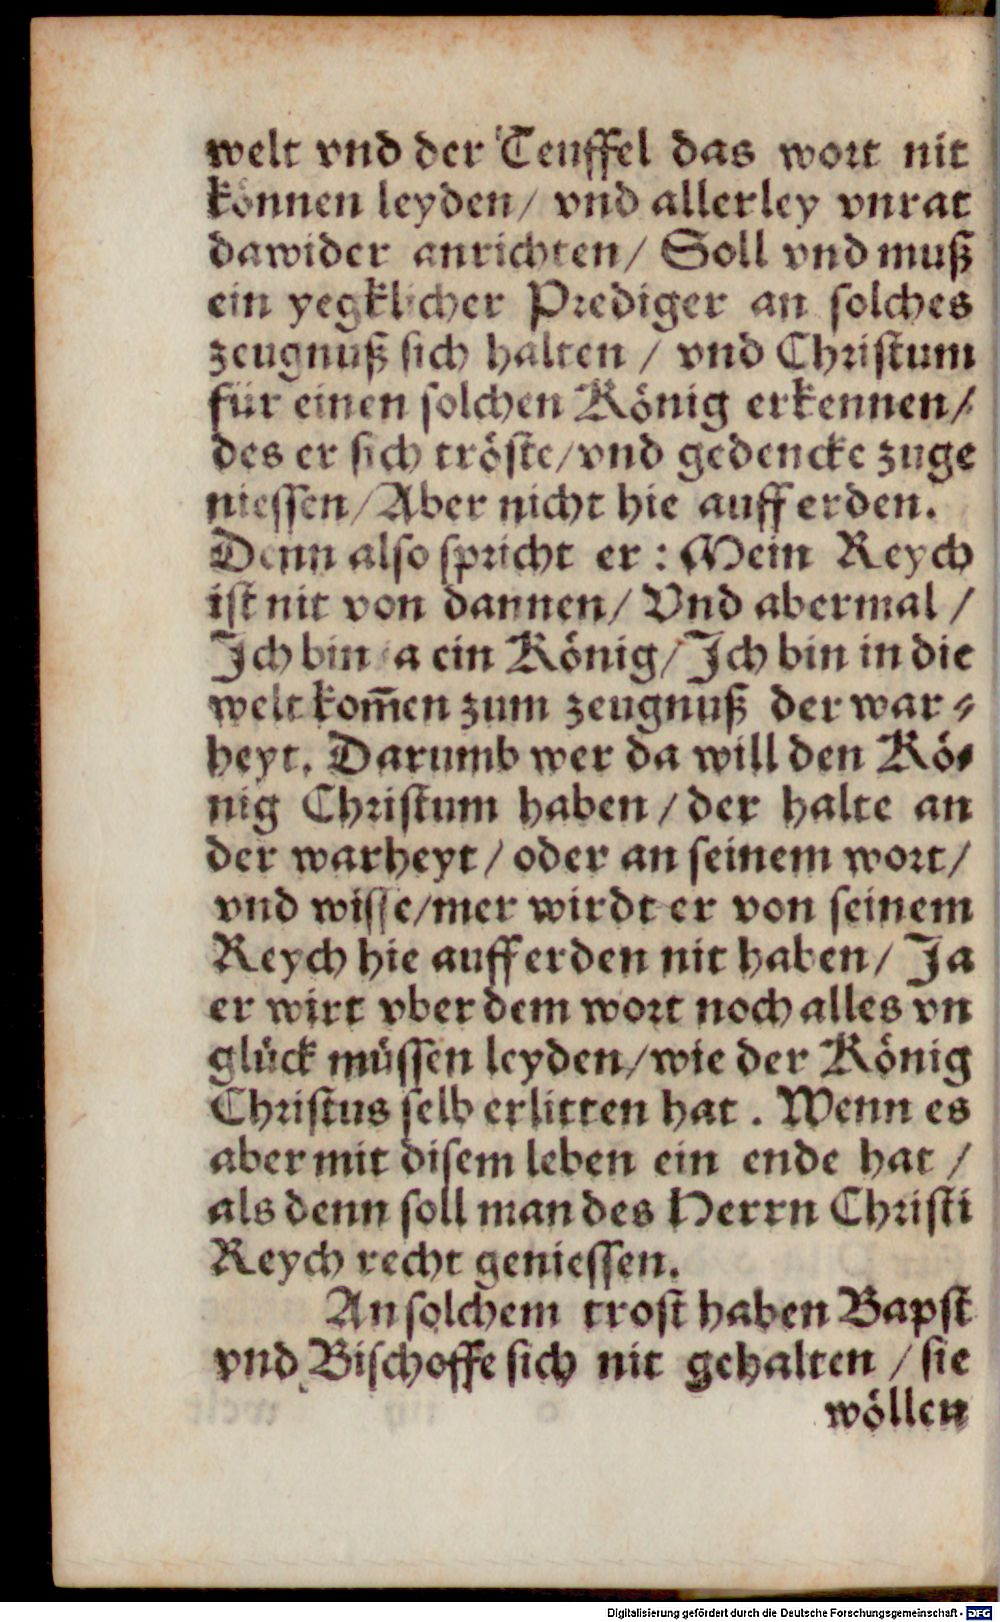 welt vnd der Teuffel das wort nit
können leyden/ vnd allerley vnrat
dawider anrichten/ Soll vnd muß
ein yegklicher Prediger an solches
zeugnuß sich halten / vnd Christum
für einen solchen König erkennen/
des er sich tröste/vnd gedencke zuge
niessen/Aber nicht hie auff erden.
Denn also spricht er : Mein Reych
ist nit von dannen/ Vnd abermal /
Ich bin ja ein König/Ich bin in die
welt kom̃en zum zeugnuß der war⸗
heyt. Darumb wer da will den Kö⸗
nig Christum haben / der halte an
der warheyt / oder an seinem wort/
vnd wisse/mer wirdt er von seinem
Reych hie auff erden nit haben/ Ja
er wirt vber dem wort noch alles vn
glück müssen leyden/wie der König
Christus selb erlitten hat . Wenn es
aber mit disem leben ein ende hat /
als denn soll man des Herrn Christi
Reych recht geniessen.
An solchem trost haben Bapst
vnd Bischoffe sich nit gehalten / sie
wöllen
Digitalisierung gefördert durch die Deutsche Forschungsgemeinschaft - DFG